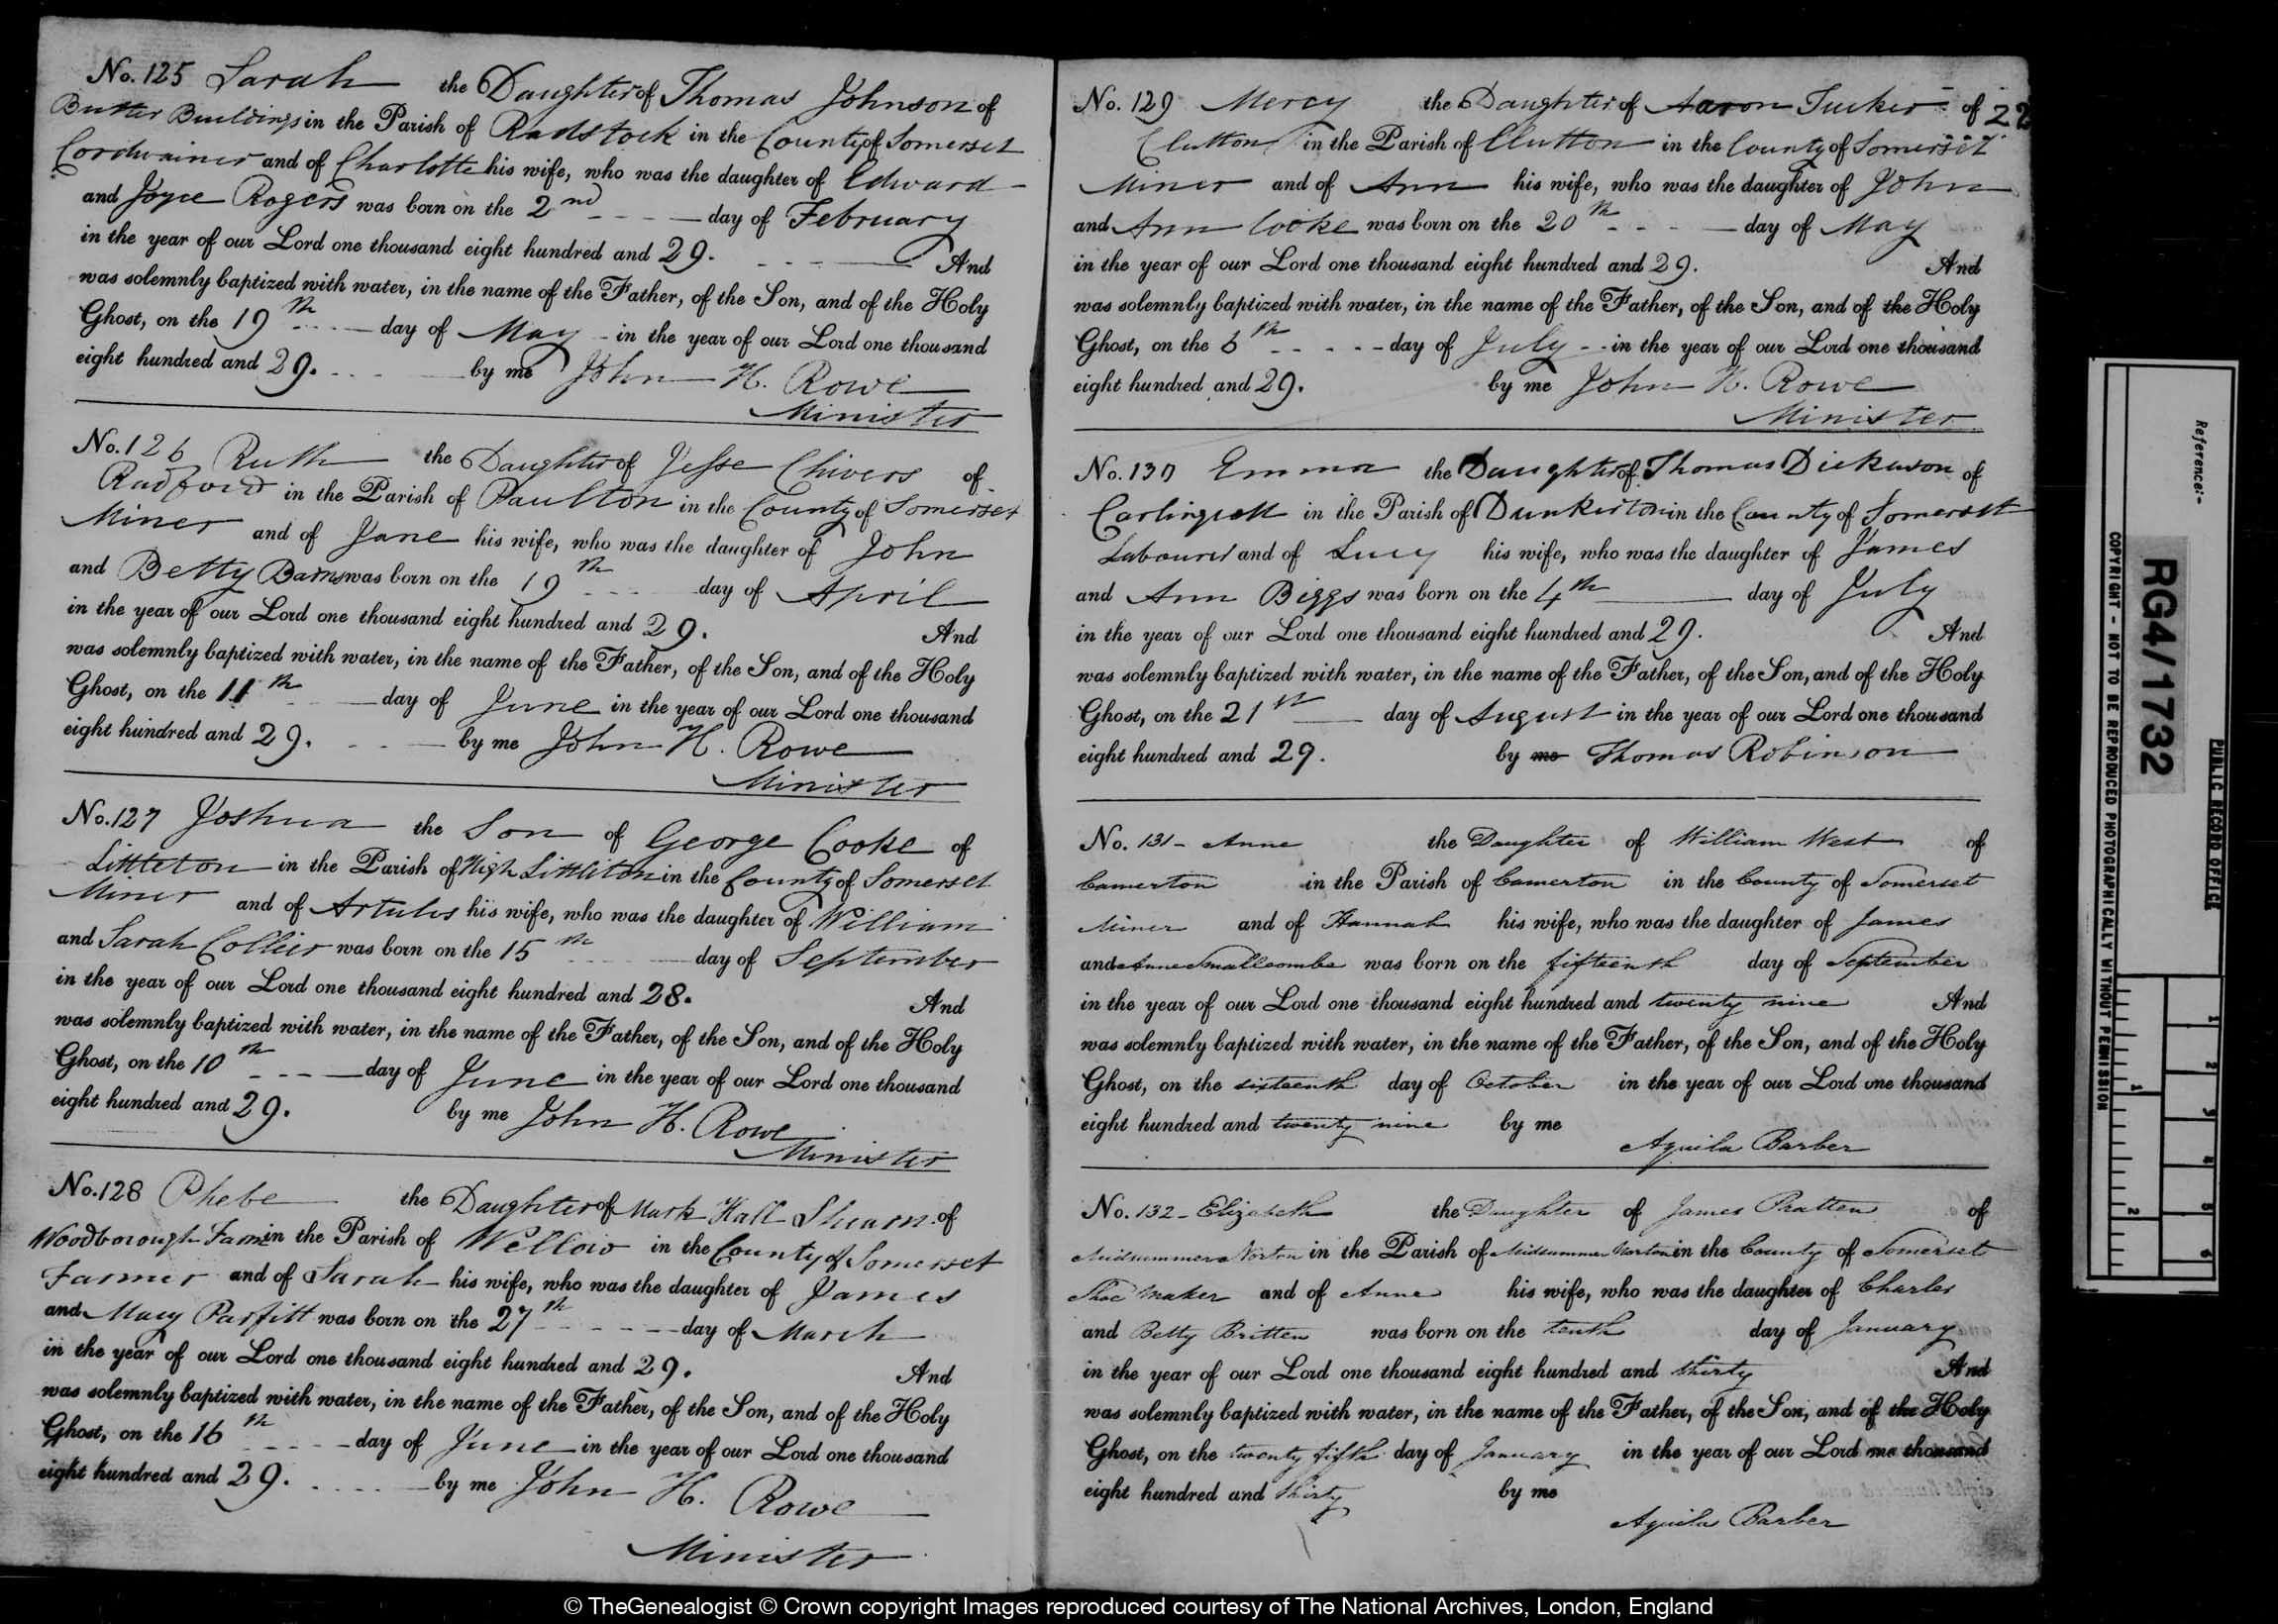 No. 125 Sarah the Daughter of Thomas Johnson of
Butter Buildings in the Parish of Radstock in the County of Somerset
Cordwainer and of Charlotte his wife, who was the daughter of Edward
and Joyce Rogers was born on the 2nd day of February
in the year of our Lord one thousand eight hundred and 29. And
was solemnly baptized with water, in the name of the Father, of the Son, and of the Holy
Ghost, on the 19th day of May in the year of our Lord one thousand
eight hundred and 29. by me John H. Rowe
Minister
No. 126 Ruth the Daughter of Jesse Chivers of
Radford in the Parish of Paulton in the County of Somerset
Miner and of Jane his wife, who was the daughter of John
and Betty Barns was born on the 19th day of April
in the year of our Lord one thousand eight hundred and 29. And
was solemnly baptized with water, in the name of the Father, of the Son, and of the Holy
Ghost, on the 11th day of June in the year of our Lord one thousand
eight hundred and 29. by me John H. Rowe
Minister
No. 127 Joshua the Son of George Cooke of
Littleton in the Parish of High Littleton in the County of Somerset
Miner and of his wife, who was the daughter of William
and Sarah Collier was born on the 15th day of September
in the year of our Lord one thousand eight hundred and 28. And
was solemnly baptized with water, in the name of the Father, of the Son, and of the Holy
Ghost, on the 10th day of June in the year of our Lord one thousand
eight hundred and 29. by me John H. Rowe
Minister
No. 128 Phebe the Daughter of Mark Hall Shearn of
Woodborough Farm in the Parish of Wellow in the County of Somerset
Farmer and of Sarah his wife, who was the daughter of James
and Mary Parfitt was born on the 27th day of March
in the year of our Lord one thousand eight hundred and 29. And
was solemnly baptized with water, in the name of the Father, of the Son, and of the Holy
Ghost, on the 16th day of June in the year of our Lord one thousand
eight hundred and 29. by me John H. Rowe
Minister
No. 129 Mercy the Daughter of Aaron Tucker of 22
Clutton in the Parish of Clutton in the County of Somerset
Miner and of Ann his wife, who was the daughter of John
and Ann Cooke was born on the 20th day of May
in the year of our Lord one thousand eight hundred and 29. And
was solemnly baptized with water, in the name of the Father, of the Son, and of the Holy
Ghost, on the 6th day of July in the year of our Lord one thousand
eight hundred and 29. by me John H. Rowe
Minister
No. 130 Emma the Daughter of Thomas Dickason of
Carlingcott in the Parish of Dunkerton in the County of Somerset
Labourer and of Lucy his wife, who was the daughter of James
and Ann Biggs was born on the 4th day of July
in the year of our Lord one thousand eight hundred and 29. And
was solemnly baptized with water, in the name of the Father, of the Son, and of the Holy
Ghost, on the 21st day of August in the year of our Lord one thousand
eight hundred and 29. by me Thomas Robinson
No. 131 - Anne the Daughter of William West of
Camerton in the Parish of Camerton in the County of Somerset
Miner and of Hannah his wife, who was the daughter of James
and Anne Smallcombe was born on the fifteenth day of September
in the year of our Lord one thousand eight hundred and twenty nine And
was solemnly baptized with water, in the name of the Father, of the Son, and of the Holy
Ghost, on the sixteenth day of October in the year of our Lord one thousand
eight hundred and twenty nine by me
Aquila Barber
No. 132 - Elizabeth the Daughter of James Pratten of
Midsummer Norton in the Parish of Midsummer Norton in the County of Somerset
Shoe Maker and of Anne his wife, who was the daughter of Charles
and Betty Britten was born on the tenth day of January
in the year of our Lord one thousand eight hundred and thirty And
was solemnly baptized with water, in the name of the Father, of the Son, and of the Holy
Ghost, on the twenty fifth day of January in the year of our Lord one thousand
eight hundred and thirty by me
Aquila Barber
Reference:-
RG4/1732
PUBLIC RECORD OFFICE
COPYRIGHT - NOT TO BE REPRODUCED PHOTOGRAPHICALLY WITHOUT PERMISSION
1 2
1 2 3 4 5 6
© TheGenealogist © Crown copyright Images reproduced courtesy of The National Archives, London, England